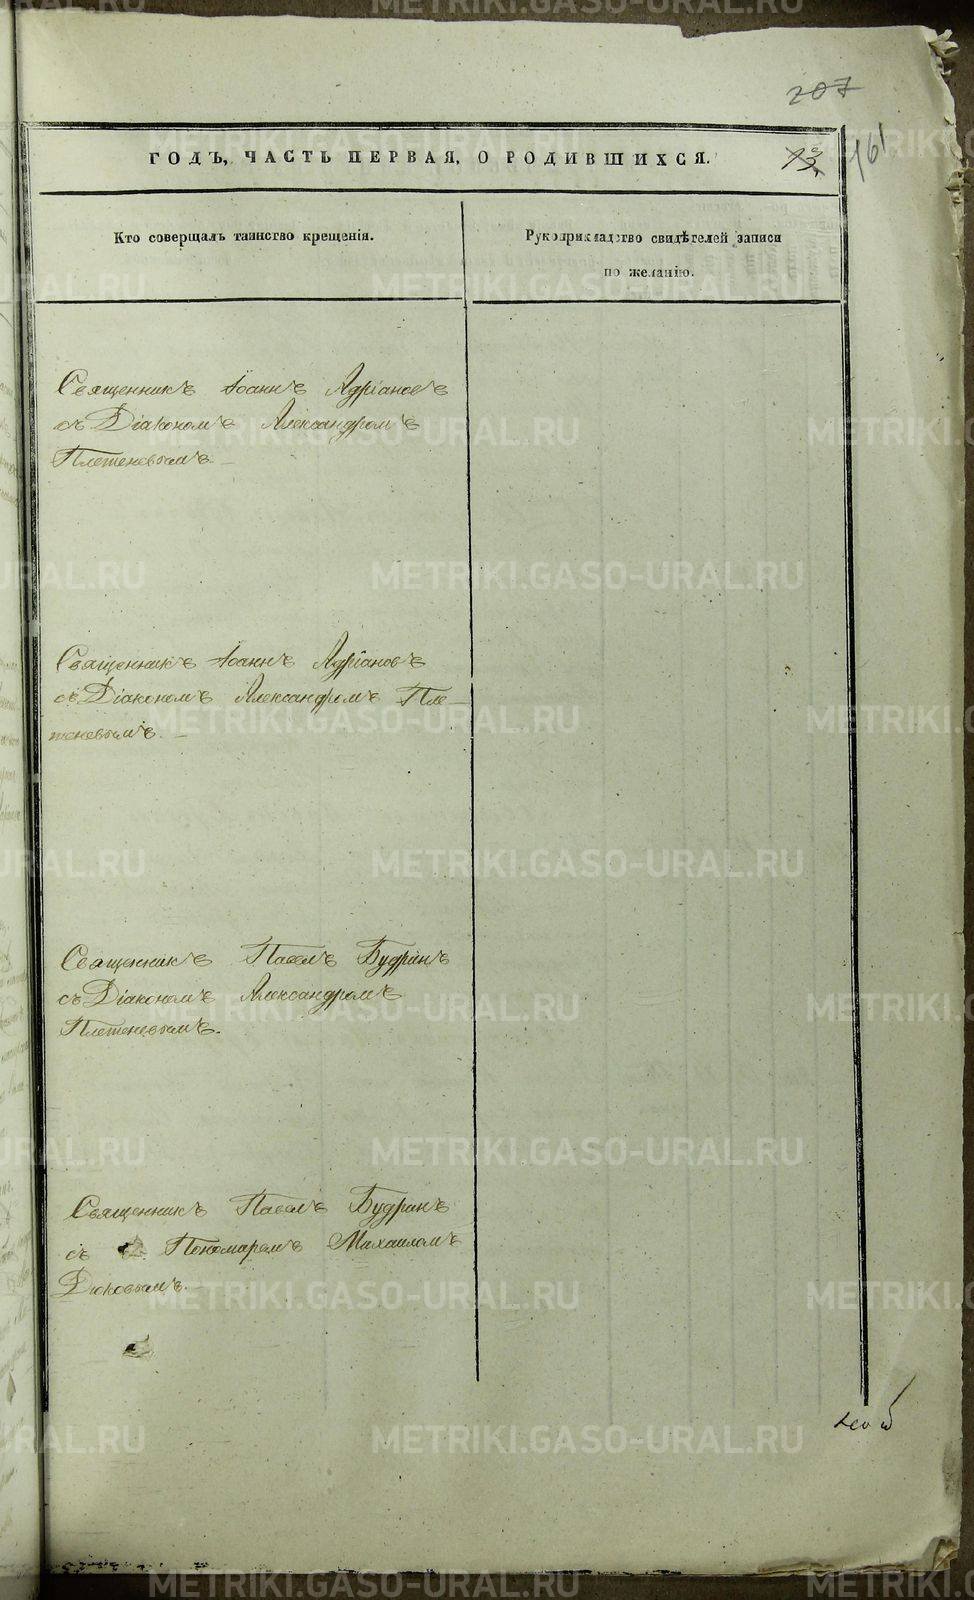 207
ГОДЪ, ЧАСТЬ ПЕРВАЯ, О РОДИВШИХСЯ.
161
Кто совершалъ таинство крещенія.
Рукоприкладство свидѣтелей записи
по желанію.
Священникъ Іоаннъ Адріановъ
съ Діакономъ Александромъ
Плетеневымъ.
Священникъ Іоаннъ Адріановъ
съ Діакономъ Александромъ Пле-
теневымъ.
Священникъ Павелъ Будринъ
съ Діакономъ Александромъ
Плетеневымъ.
Священникъ Павелъ Будринъ
съ Пономаремъ Михаиломъ
Дюковымъ.
METRIKI.GASO-URAL.RU